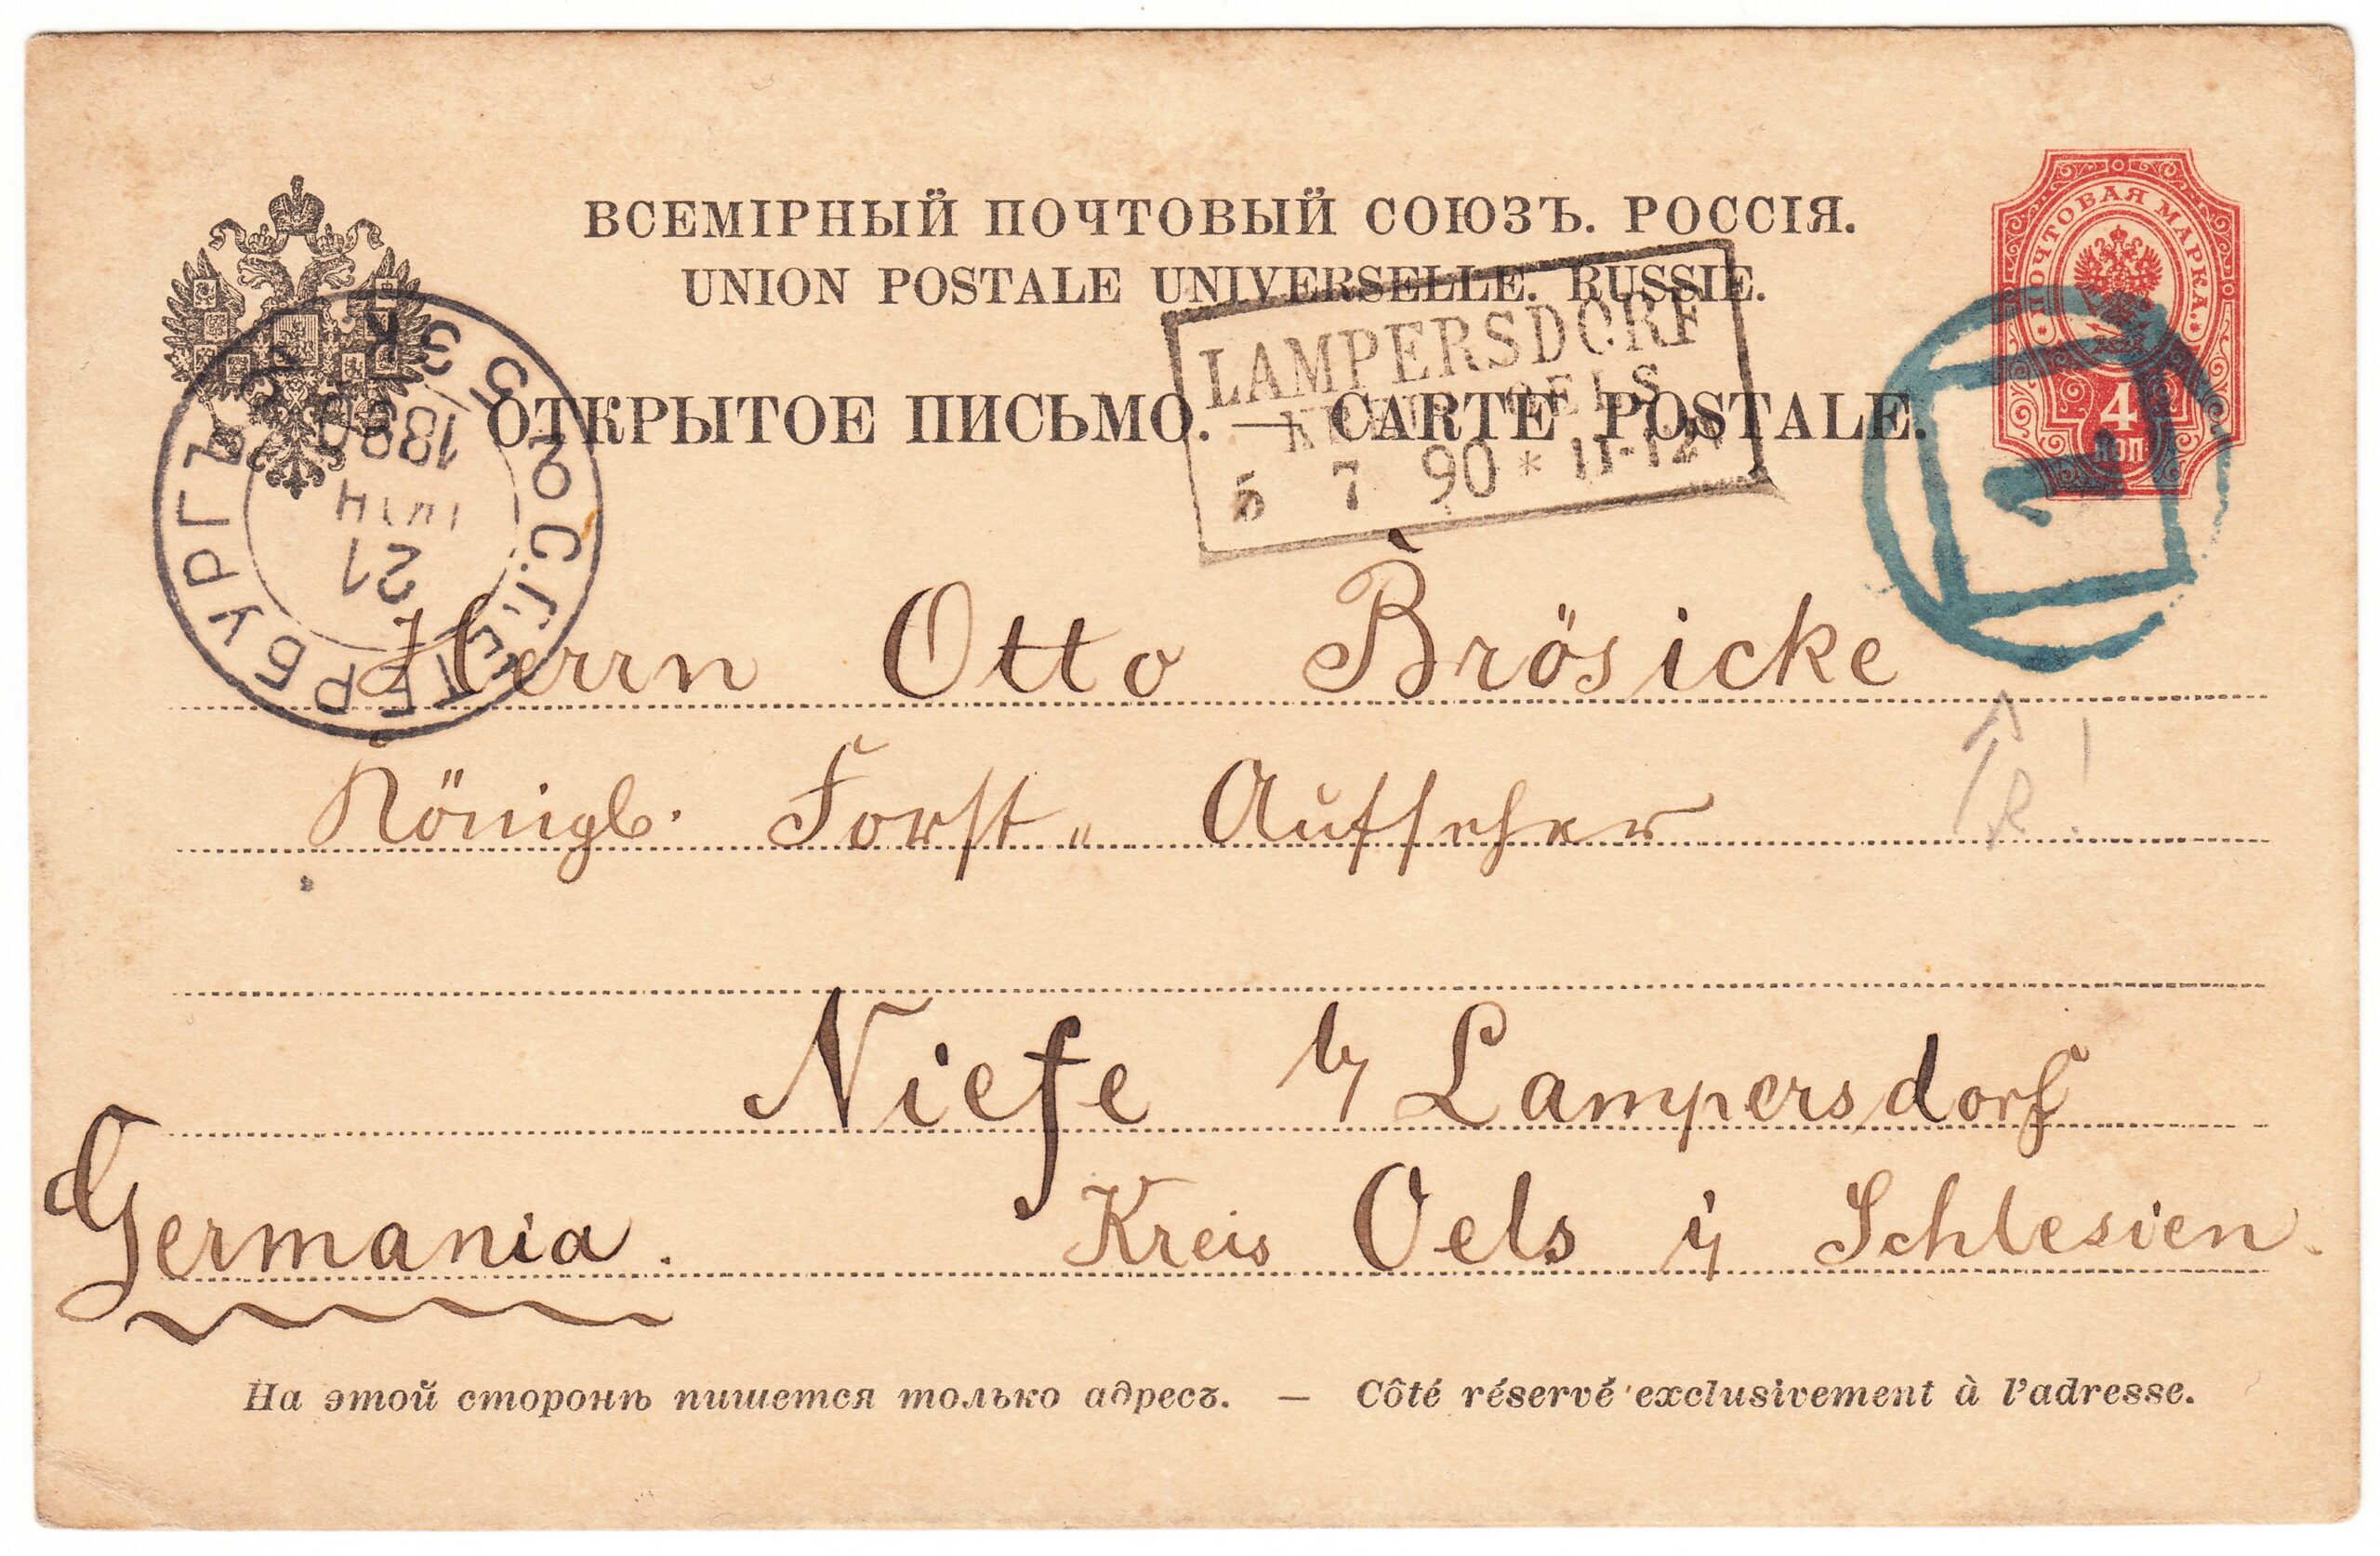 ВСЕМІРНЫЙ ПОЧТОВЫЙ СОЮЗЪ. РОССІЯ.
UNION POSTALE UNIVERSELLE. RUSSIE.
ОТКРЫТОЕ ПИСЬМО. — CARTE POSTALE.
ПОЧТОВАЯ МАРКА.
4
КОП
LAMPERSDORF
OELS
5 7 90 * 11-12
С.ПЕТЕРБУРГЪ
21
1890
Herrn Otto Brösicke
Königl. Forst- Aufseher
Niefe b/ Lampersdorf
Germania. Kreis Oels i/ Schlesien.
На этой сторонѣ пишется только адресъ. — Côté réservé exclusivement à l'adresse.